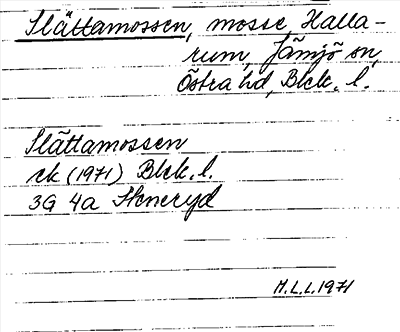 Slättamossen, mosse Halla-
rum, Jämjö sn,
Östra hd, Blek. l.
Slättamossen
ek (1971) Blek. l.
3G 4a Steneryd
M.L.L. 1971